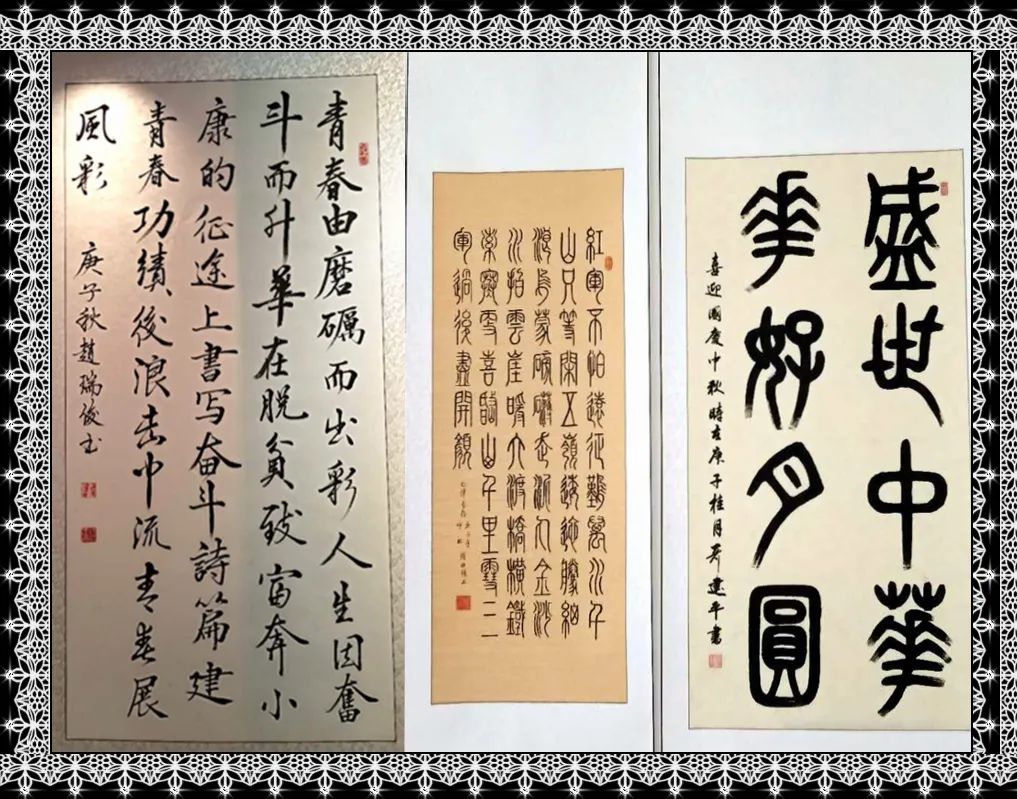 青春由磨礪而出彩人生因奮
斗而升華在脱貧致富奔小
康的征途上書写奋斗詩篇建
青春功績後浪击中流青春展
風彩
庚子秋趙瑞俊书
紅軍不怕遠征難萬水千
山只等閑五嶺逶迤騰細
浪烏蒙磅礴走泥丸金沙
水拍雲崖暖大渡橋橫鐵
索寒更喜岷山千里雪三
軍過後盡開顏
盛世中華
花好月圓
喜迎國慶中秋時在庚子桂月齐建平書